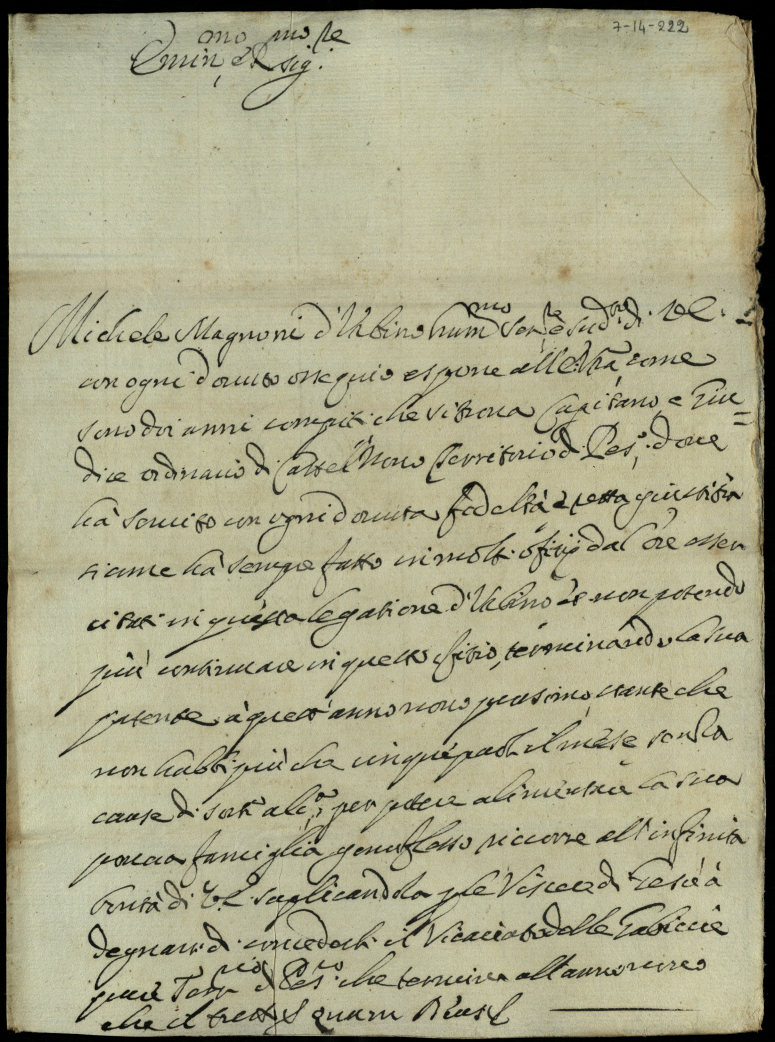 7-14-222
Emin.mo e R.mo Sig.re
Michele Magnoni d'Urbino hum.mo ser.re e sud.to di V. E.
con ogni dovuto ossequio espone all'E. V.ra come
sono doi anni compiti che si trova Capitano e Giu=
dice ordinario di Castel Novo Territorio di Pes.o dove
hà servito con ogni dovuta fedeltà e retta giustitia
come hà sempre fatto in molti ofitij da esser
citati in questa legatione d'Urbino et non potendo
più continuare in questo ofitio, terminando la sua
patente à quest'anno novo prossimo, stante che
non habbi più che cinque paoli il mese senza
cause di sort'alc.a per potere alimentare la sua
povera famiglia genuflesso riccorre all'infinita
bontà di V. E. suplicandola p le Viscere di Giesù à
degnarsi di concederli il Vicariato delle Gabiccie
pure Terr.rio di Pes.ro che termina all'anno novo
che il tutto quam Deus